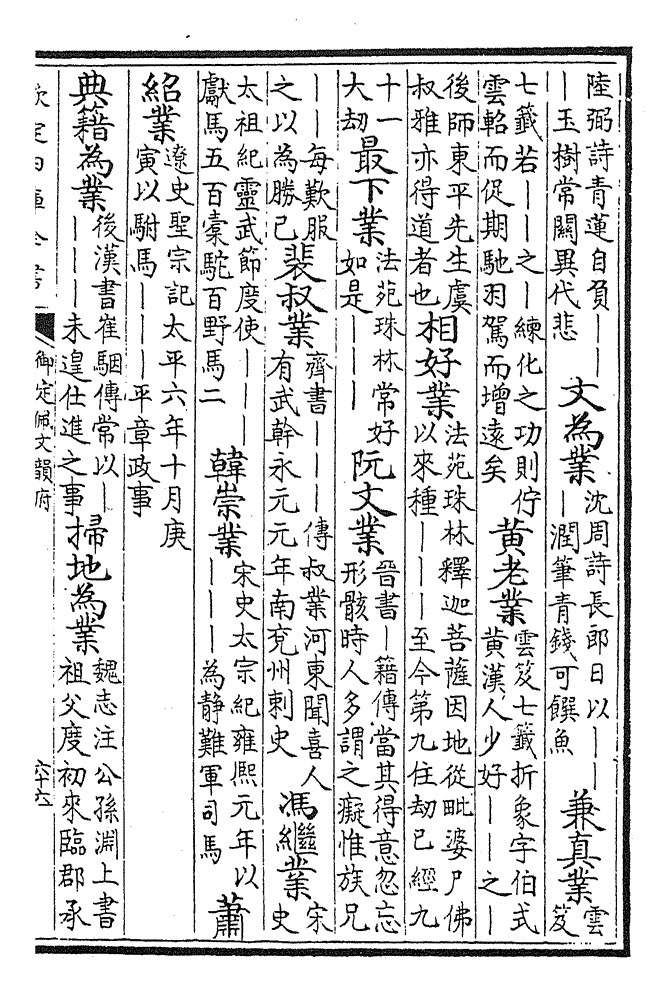 陸弼詩青蓮自負｜｜
｜玉樹常關異代悲
文為業
沈周詩長郎日以｜｜
｜潤筆青錢可饌魚
兼真業
雲
笈
七籤若｜｜之｜練化之功則佇
雲軺而促期馳羽駕而增遠矣
黄老業
雲笈七籤折象字伯式
黄漢人少好｜｜之｜
後師東平先生虞
叔雅亦得道者也
相好業
法苑珠林釋迦菩薩因地從毗婆尸佛
以來種｜｜｜至今第九住劫已經九
十一
大劫
最下業
法苑珠林常好
如是｜｜｜
阮文業
晉書｜籍傳當其得意忽忘
形骸時人多謂之癡惟族兄
｜｜每歎服
之以為勝己
裴叔業
齊書｜｜｜傳叔業河東聞喜人
有武幹永元元年南兖州刺史
馮繼業
宋
史
太祖紀靈武節度使｜｜｜
獻馬五百槖駝百野馬二
韓崇業
宋史太宗紀雍熙元年以
｜｜｜為静難軍司馬
蕭
紹業
遼史聖宗記太平六年十月庚
寅以駙馬｜｜｜平章政事
典籍為業
後漢書崔駰傳常以｜
｜｜｜未遑仕進之事
掃地為業
魏志注公孫淵上書
祖父度初來臨郡承
欽定四庫全書
御定佩文韻府
六十六